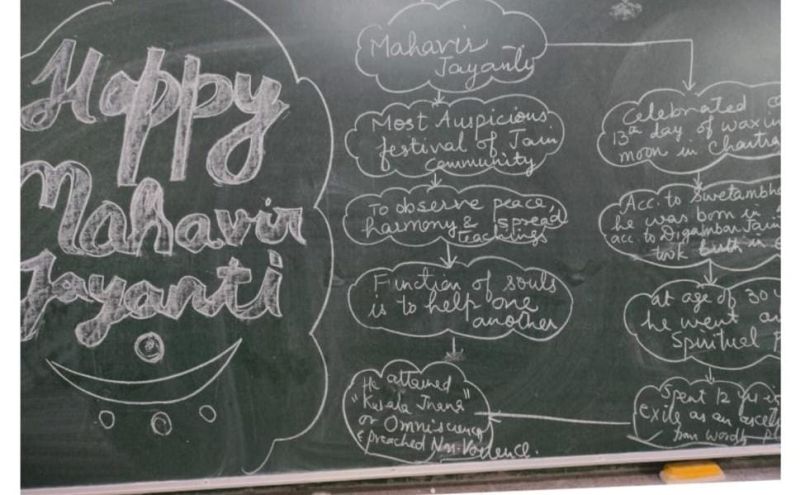 Happy
Mahavir
Jayanti
Mahavir
Jayanti
Most Auspicious
festival of Jain
Community
To observe peace,
harmony & spread
teachings
Function of souls
is to help one
another
He attained
"Kevala Jnana"
or Omniscience
& preached Non-Violence.
Celebrated
13th day of waxin
moon in Chaitra
Acc. to Swetambh
he was born in
acc. to Digambar Jain
took birth in
at age of 30
he went
Spiritual
Spent 12 yrs
exile as an asceti